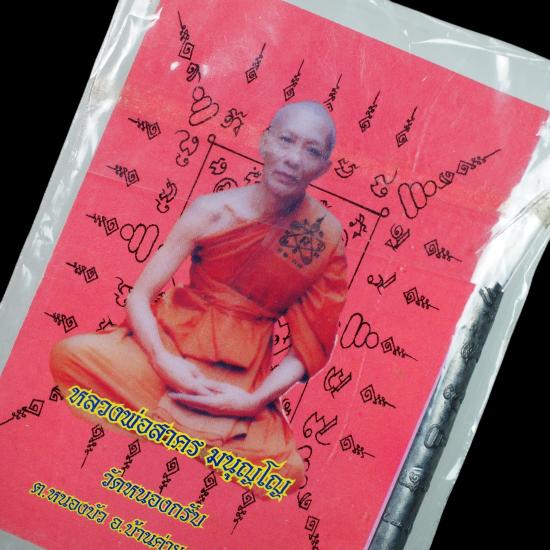 หลวงพ่อสาคร มนุญโญ
วัดหนองกรับ
ต.หนองบัว อ.บ้านค่าย